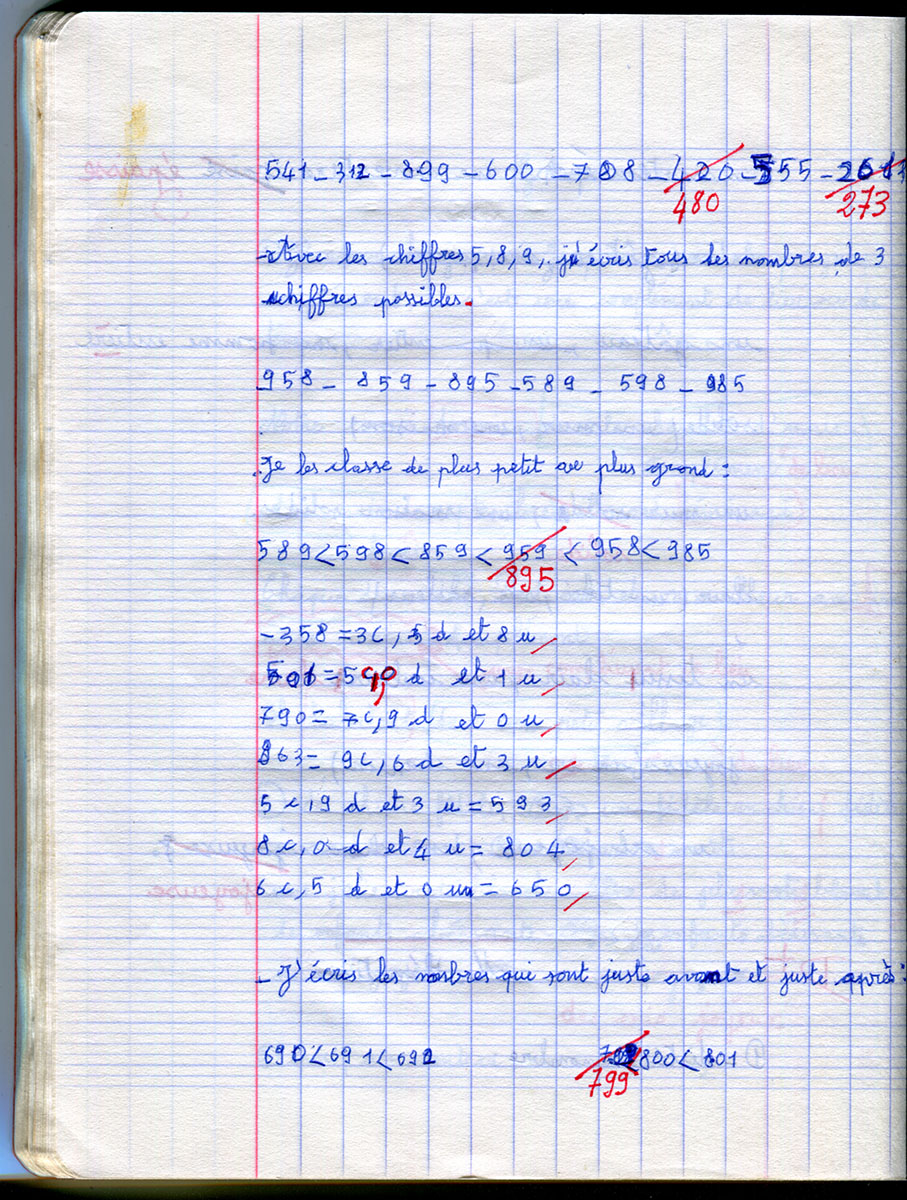 541 - 312 - 899 - 600 - 708 - 420 - 555 -
480 273
- Avec les chiffres 5, 8, 9, j'écris tous les nombres de 3
chiffres possibles.
958 - 859 - 895 - 589 - 598 - 985
Je les classe de plus petit au plus grand :
589 < 598 < 859 < 959 < 958 < 985
895
- 358 = 3c, 5 d et 8 u
501 = 5 c, 0 d et 1 u
790 = 7c, 9 d et 0 u
963 = 9c, 6 d et 3 u
5 c, 9 d et 3 u = 593
8 c, 0 d et 4 u = 804
6 c, 5 d et 0 u = 650
- J'écris les nombres qui sont juste avant et juste après :
690 < 691 < 692 < 800 < 801
799